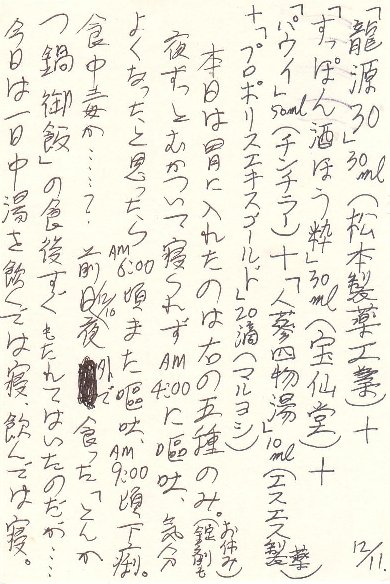 12/11
「龍源30」30ml(松本製薬工業)+
「すっぽん酒ほう粋」30ml(宝仙堂)+
「パウイ」50ml(チンチラー)+「人蔘四物湯」10ml(エスエス製薬)
+「プロポリスエキスゴールド」20滴(マルヨシ)
本日は胃に入れたのは右の五種のみ。(錠剤もお休み)
夜ずっとむかついて寝られずAM4:00に嘔吐、気分
よくなったと思ったらAM6:00頃また嘔吐、AM9:00頃下痢。
食中毒か……?前日12/10夜外で食った「とんか
つ鍋御飯」の食後すぐもたれてはいたのだが…
今日は一日中湯を飲んでは寝、飲んでは寝。